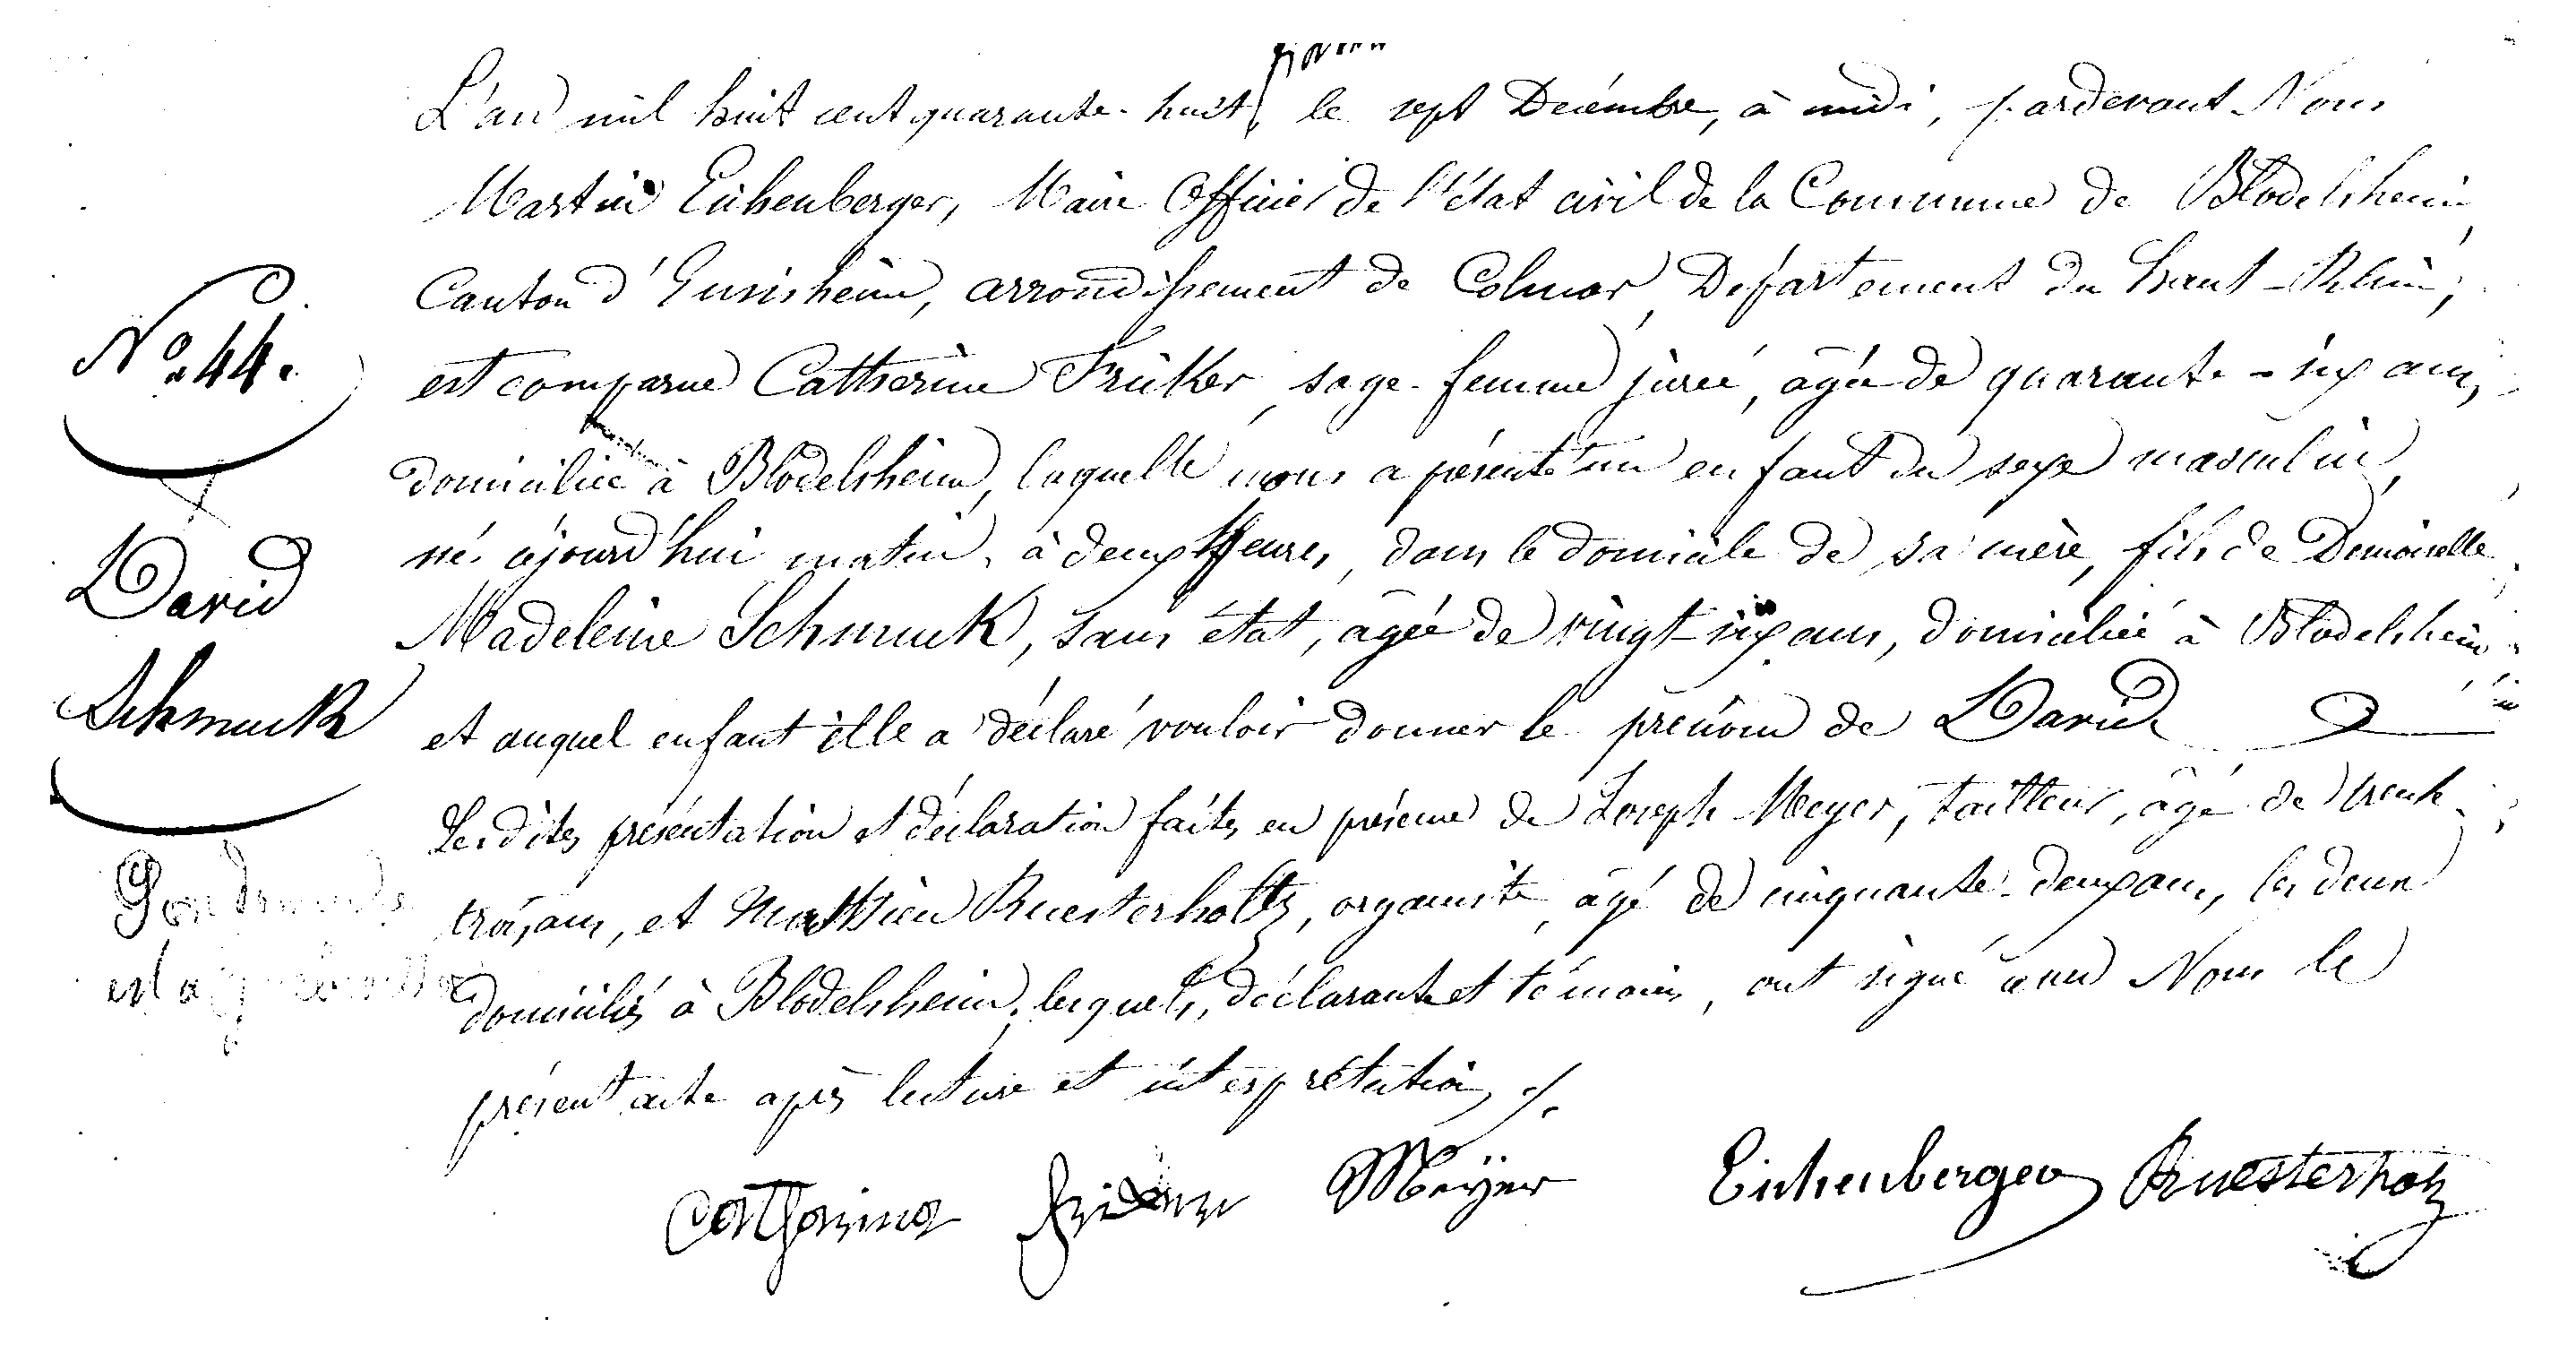 L'an mil huit cent quarante-huit, le sept Decémbre, à midi, pardevant Nous
Martin Eichenberger, Maire Officier de l'état civil de la Commune de Blodelsheim,
Canton d'Ensisheim, arrondissement de Colmar, Département du haut-Rhin,
est comparue Catherine Früker, sage-femme jurée, âgée de quarante-six ans,
domiciliée à Blodelsheim, laquelle nous a présenté un enfant du sexe masculin,
né ajourd'hui matin, à deux heures, dans le domicile de sa mère, fils de Demoiselle
Madeleine Schmuck, sans état, âgée de vingt-six ans, domiciliée à Blodelsheim
et auquel enfant elle a déclaré vouloir donner le prénom de David
Lesdites présentation et déclaration faites en présence de Joseph Meyer, tailleur, âgé de trente-
trois ans, et Mathieu Ruesterholtz, organiste, âgé de cinquante-deux ans, les deux
domiciliés à Blodelsheim, lesquels, déclarante et témoins, ont signé avec Nous le
présent acte après lecture et interprétation ./.
No. 44.
David
Schmuck
Catharina Meÿer Eichenberger Ruesterholz